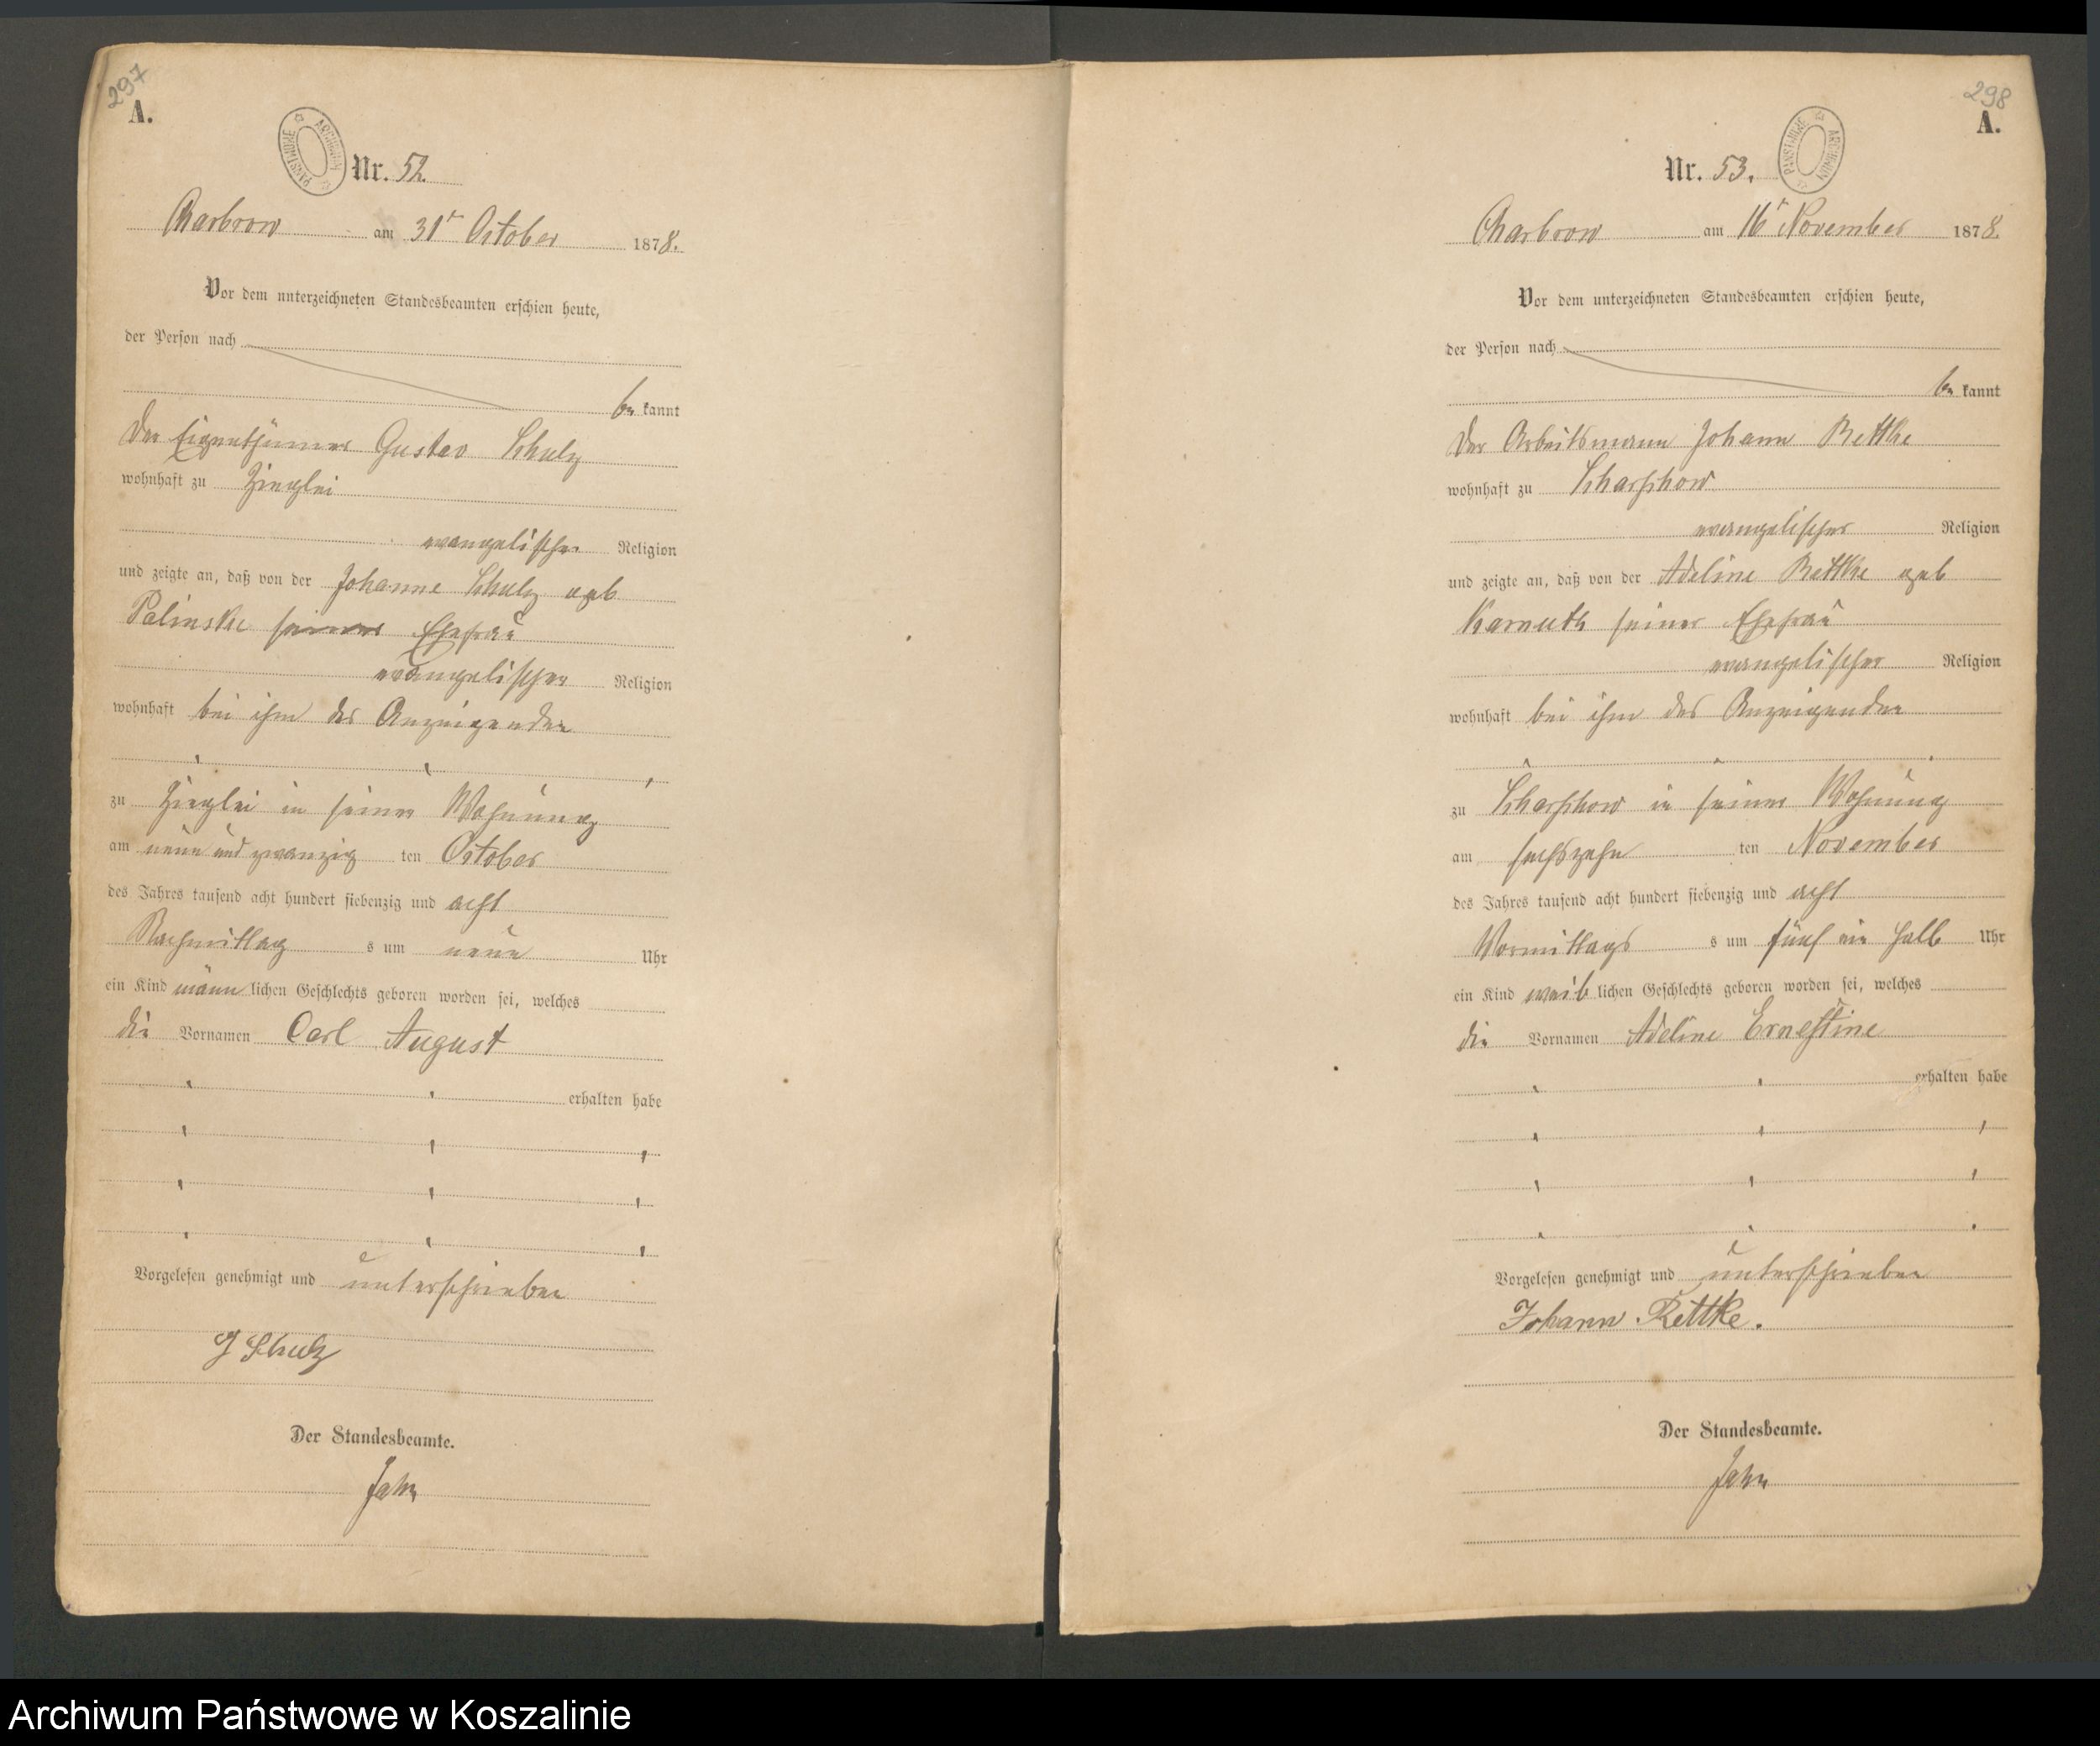 297
A.
ARCHIWUM PAŃSTWOWE
Nr. 52.
Charbrow am 31t October 1878.
Vor dem unterzeichneten Standesbeamten erschien heute,
der Person nach
be kannt
Der Eigenthümer Gustav Schulz
wohnhaft zu
evangelischer Religion
und zeigte an, daß von der Johanne Schulz geb
Palinske seiner Ehefrau
evangelischer Religion
wohnhaft bei ihm des Anzeigenden
zu in seiner Wohnung
am neun und zwanzig ten October
des Jahres tausend acht hundert siebenzig und acht
Nachmittag s um neun Uhr
ein Kind männ lichen Geschlechts geboren worden sei, welches
die Vornamen Carl August
erhalten habe
Vorgelesen genehmigt und unterschrieben
Schulz
Der Standesbeamte.
Jahn
298
A.
ARCHIWUM PAŃSTWOWE
Nr. 53.
Charbrow am 16t November 1878.
Vor dem unterzeichneten Standesbeamten erschien heute,
der Person nach
be kannt
Der Arbeitsmann Johann Rettke
wohnhaft zu Scharschow
evangelischer Religion
und zeigte an, daß von der Adeline Rettke geb
Karnuth seiner Ehefrau
evangelischer Religion
wohnhaft bei ihm des Anzeigenden
zu Scharschow in seiner Wohnung
am sechszehn ten November
des Jahres tausend acht hundert siebenzig und acht
Vormittags s um fünf ein halb Uhr
ein Kind weib lichen Geschlechts geboren worden sei, welches
die Vornamen Adeline Ernestine
erhalten habe
Vorgelesen genehmigt und unterschrieben
Johann Rettke.
Der Standesbeamte.
Jahn
Archiwum Państwowe w Koszalinie